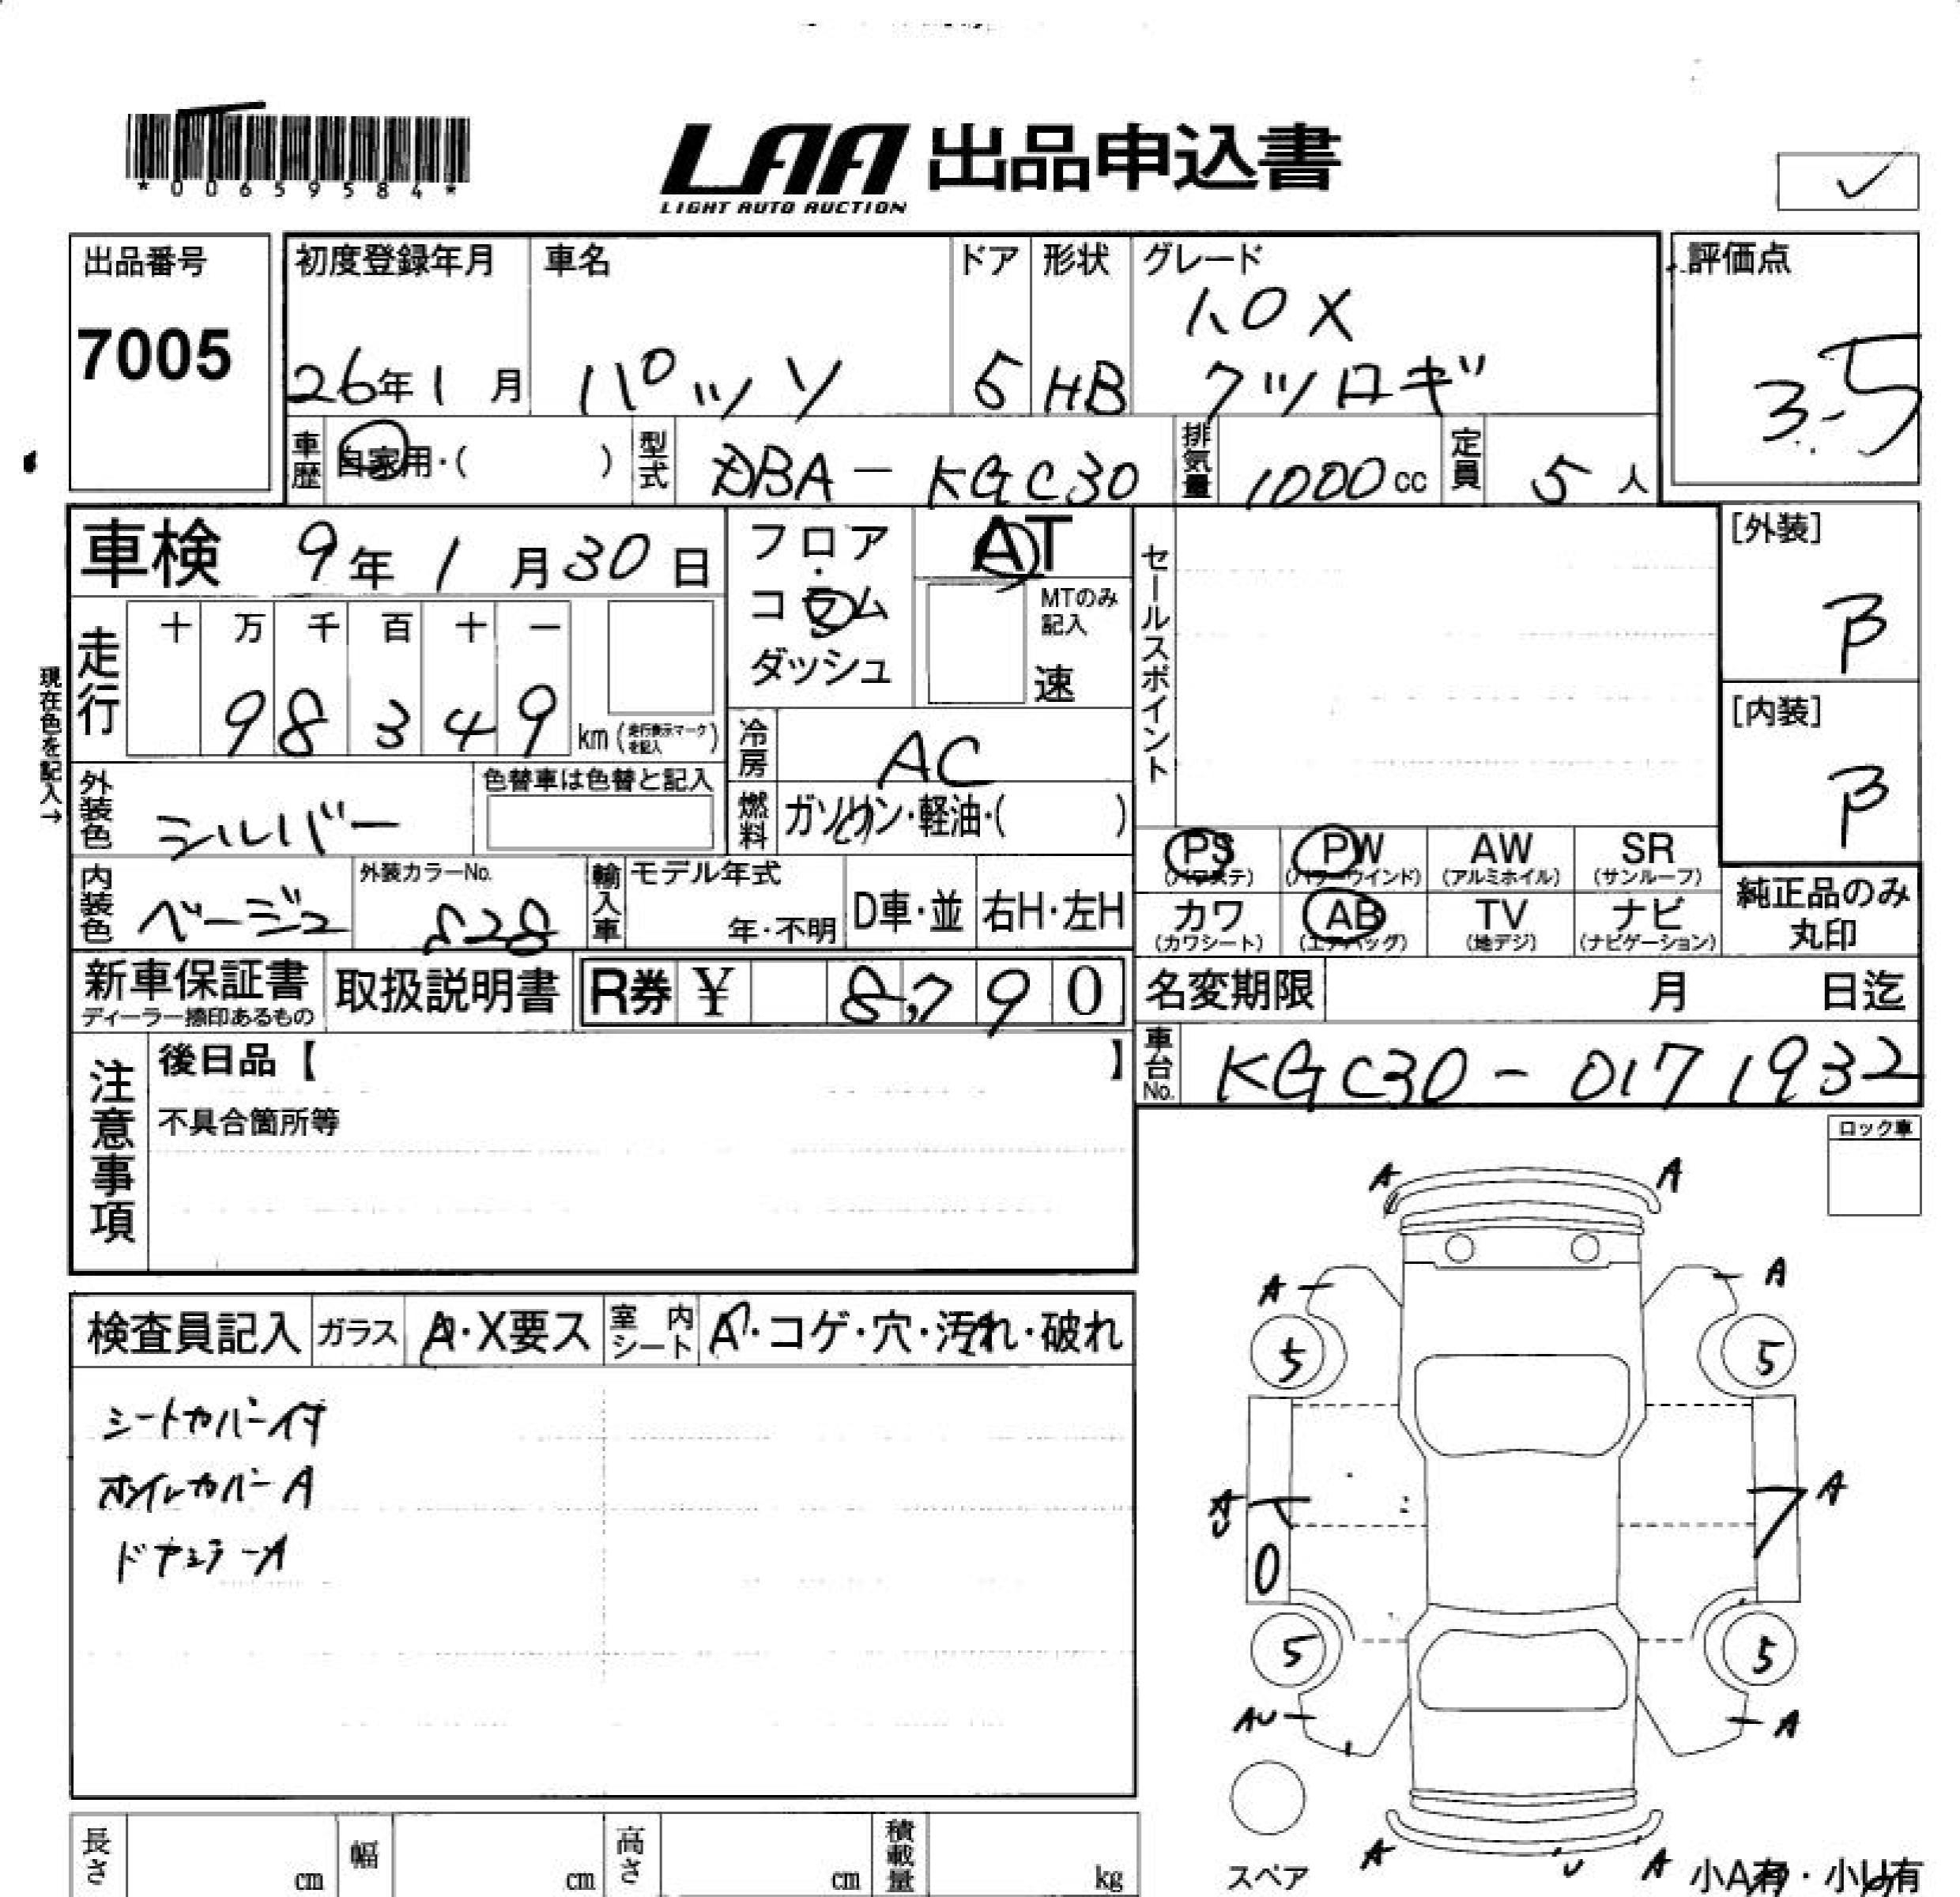 *00659584*
LAA 出品申込書
LIGHT AUTO AUCTION
出品番号
7005
初度登録年月
26年1月
車名
パッソ
ドア
5
形状
HB
グレード
1.0X
クツロギ
評価点
3.5
車歴
自家用・( )
型式
DBA-KGC30
排気量
1000cc
定員
5人
車検 9年1月30日
フロア・コラム
ダッシュ
AT
MTのみ記入
速
セールスポイント
[外装]
B
[内装]
B
走行
十 万 千 百 十 一
9 8 3 4 9 km(走行表示マークを記入)
現在色を記入→
冷房
AC
外装色
シルバー
色替車は色替と記入
燃料
ガソリン・軽油・( )
PS(パワステ) PW(パワーウインド) AW(アルミホイル) SR(サンルーフ)
カワ(カワシート) AB(エアバッグ) TV(地デジ) ナビ(ナビゲーション)
純正品のみ丸印
内装色
ベージュ
外装カラーNo.
S28
輸入車
モデル年式
年・不明
D車・並
右H・左H
新車保証書
ディーラー捺印あるもの
取扱説明書
R券 ¥ 8,790
名変期限 月 日迄
車台No.
KGC30-0171932
注意事項
後日品【 】
不具合箇所等
ロック車
検査員記入
ガラス
A・X要ス
室内シート
A・コゲ・穴・汚れ・破れ
シートカバー付
ホイルカバーA
A A
A A
5 5
A U A
0
5 5
AU A
A U A
スペア
小A有・小U有
長さ cm
幅 cm
高さ cm
積載量 kg